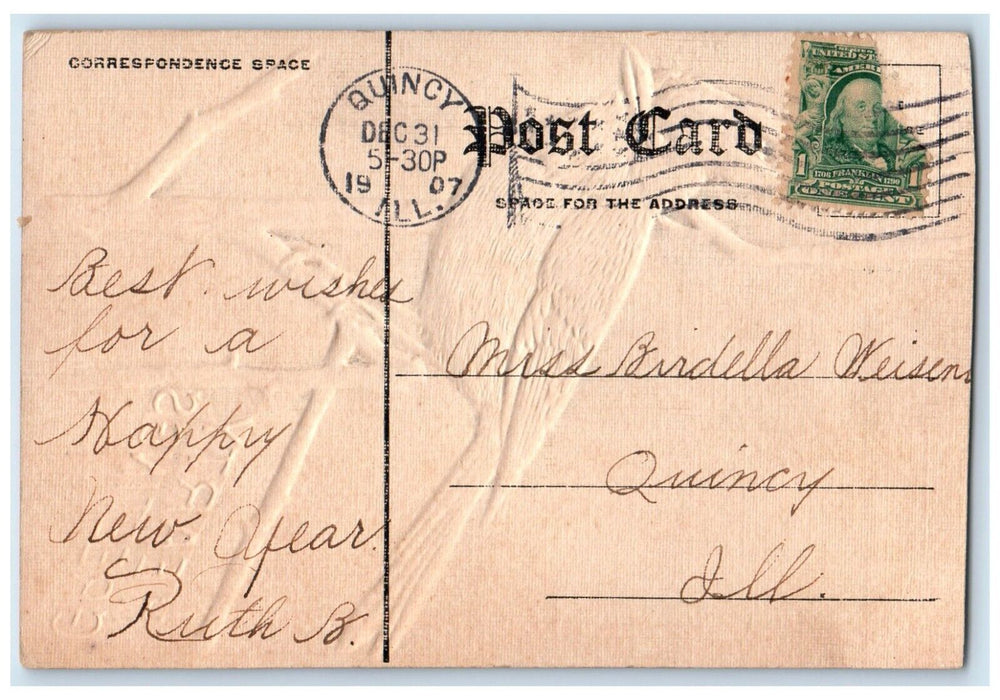 CORRESPONDENCE SPACE
QUINCY
DEC 31
5-30P
19 07
ILL.
Post Card
SPACE FOR THE ADDRESS
UNITED ST
AMERI
1 1
1706 FRANKLIN 1790
POSTAGE
ONE CENT
Best wishes
for a
Happy
New Year.
Ruth B.
Miss Birdella Weisen
Quincy
Ill.